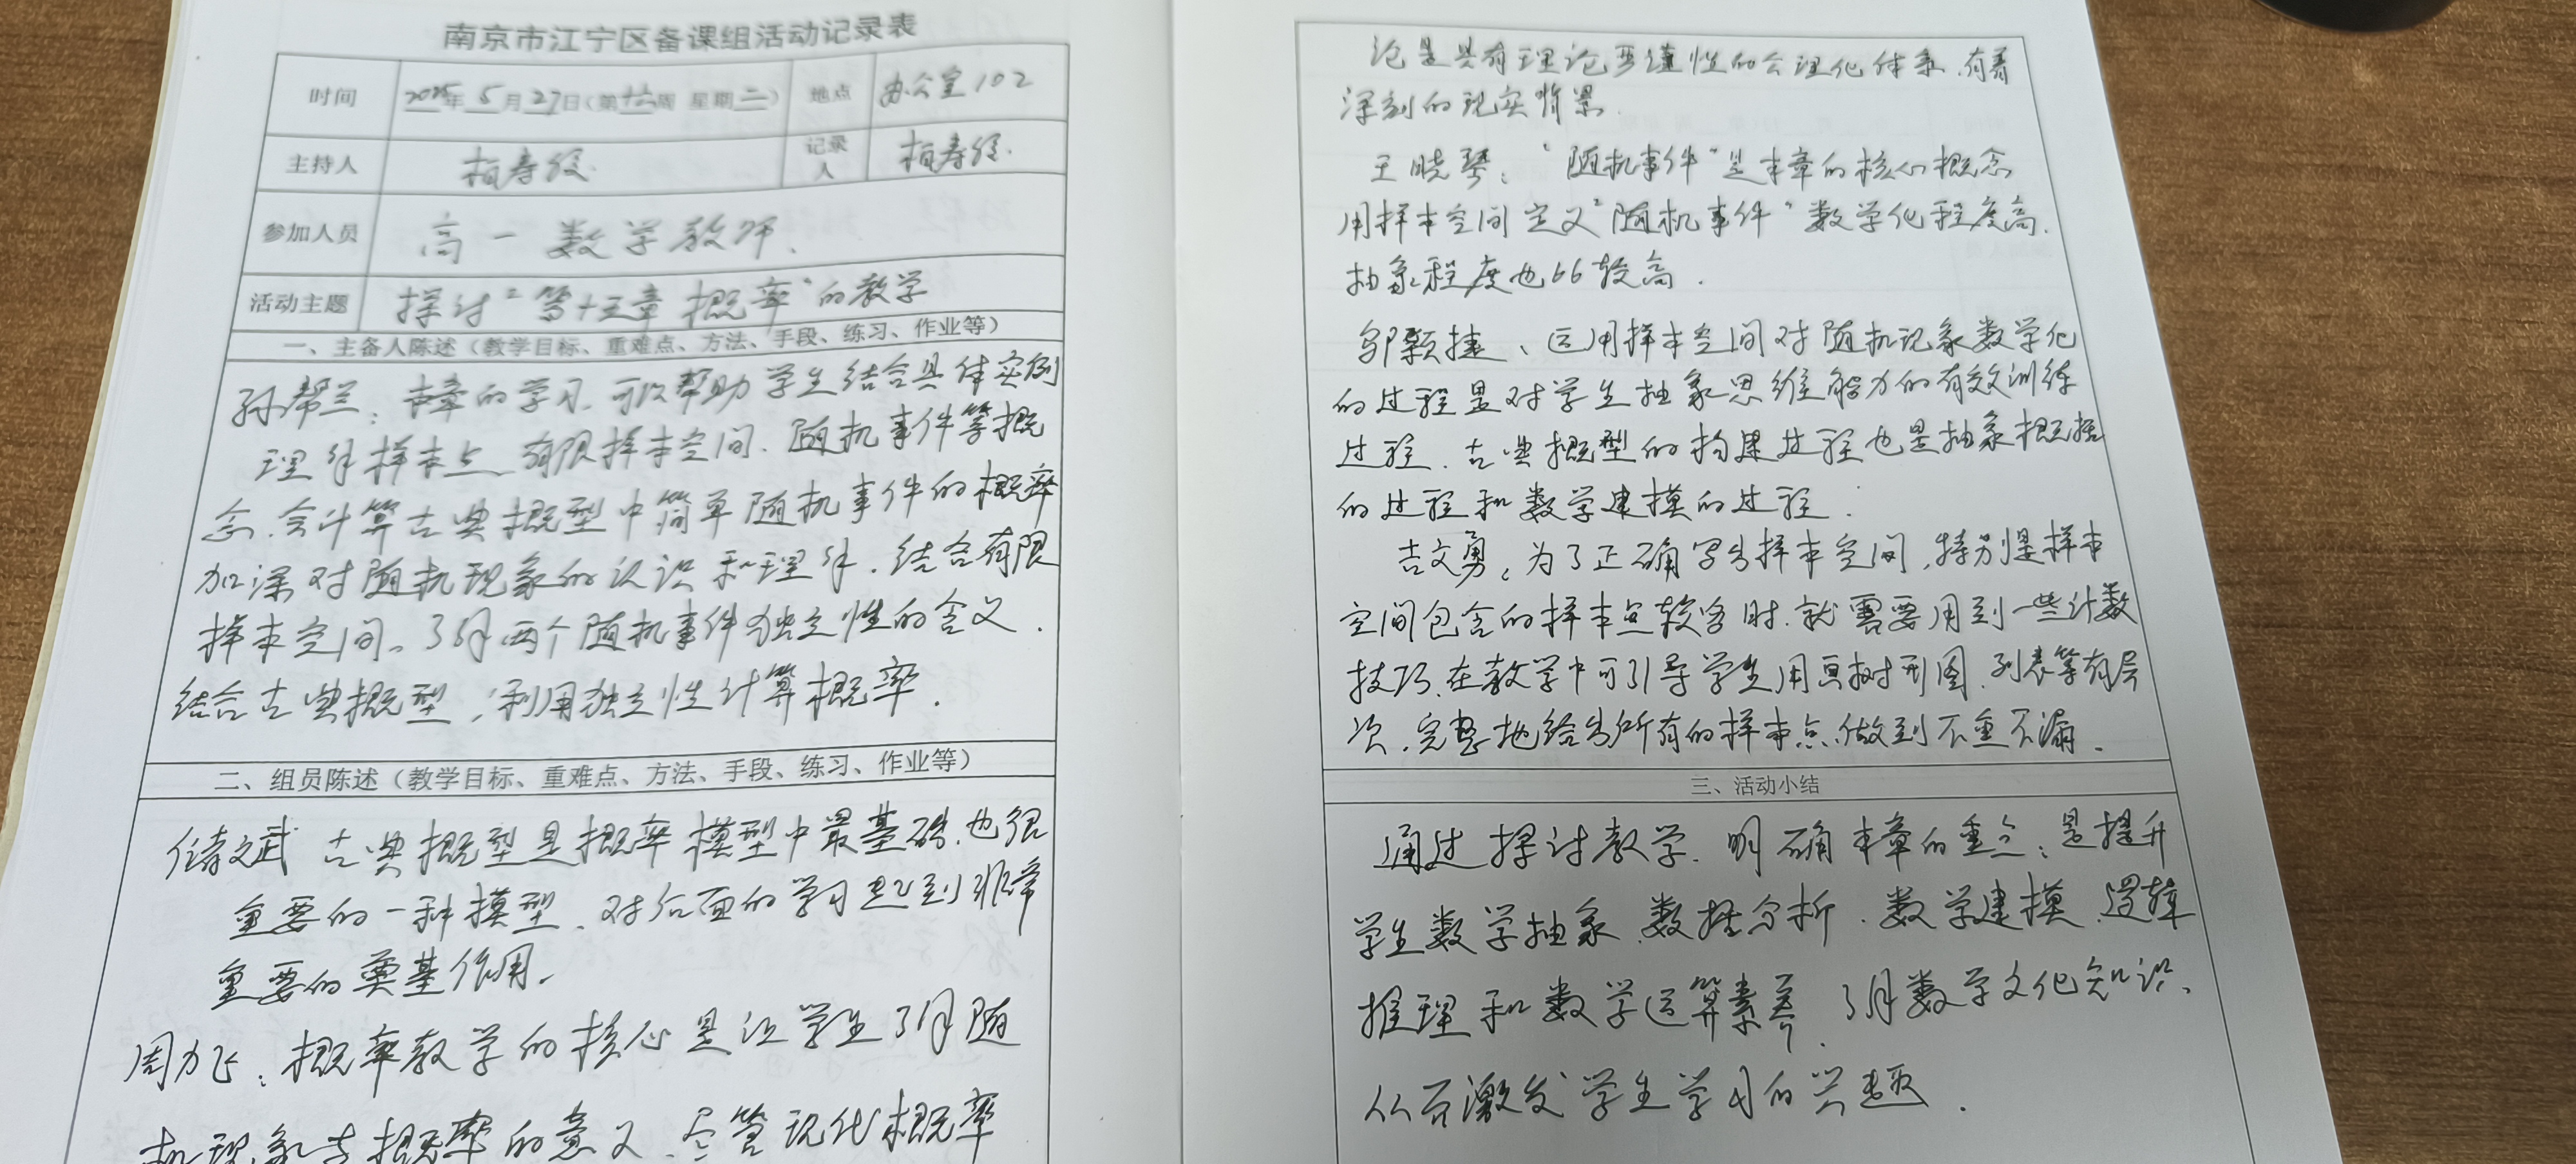 南京市江宁区备课组活动记录表
时间 2025年5月27日(第十六周 星期二) 地点 办公室102
主持人 记录人
参加人员 高一数学教师.
活动主题 探讨“第十五章 概率”的教学
一、主备人陈述(教学目标、重难点、方法、手段、练习、作业等)
孙帮兰:本章的学习.可以帮助学生结合具体实例
理解样本点、有限样本空间、随机事件等概
念.会计算古典概型中简单随机事件的概率
加深对随机现象的认识和理解.结合有限
样本空间。了解两个随机事件独立性的含义.
结合古典概型,利用独立性计算概率.
二、组员陈述(教学目标、重难点、方法、手段、练习、作业等)
文武 古典概型是概率模型中最基础.也很
重要的一种模型.对后面的学习起到非常
重要的奠基作用.
周力飞:概率教学的核心是让学生了解随
机现象与概率的意义.尽管现代概率
论是具有理论严谨性的公理化体系.有着
深刻的现实背景.
王晓琴:“随机事件”是本章的核心概念
用样本空间定义“随机事件”数学化程度高.
抽象程度也比较高.
邹颖捷、运用样本空间对随机现象数学化
的过程是对学生抽象思维能力的有效训练
过程.古典概型的构建过程也是抽象概括
的过程和数学建模的过程.
吉文勇:为了正确写出样本空间,特别是样本
空间包含的样本点较多时.就需要用到一些计数
技巧.在教学中可引导学生用画树形图.列表等有层
次.完整地给出所有的样本点.做到不重不漏.
三、活动小结
通过探讨教学.明确本章的重点:是提升
学生数学抽象.数据分析.数学建模.逻辑
推理和数学运算素养.了解数学文化知识.
从而激发学生学习的兴趣.